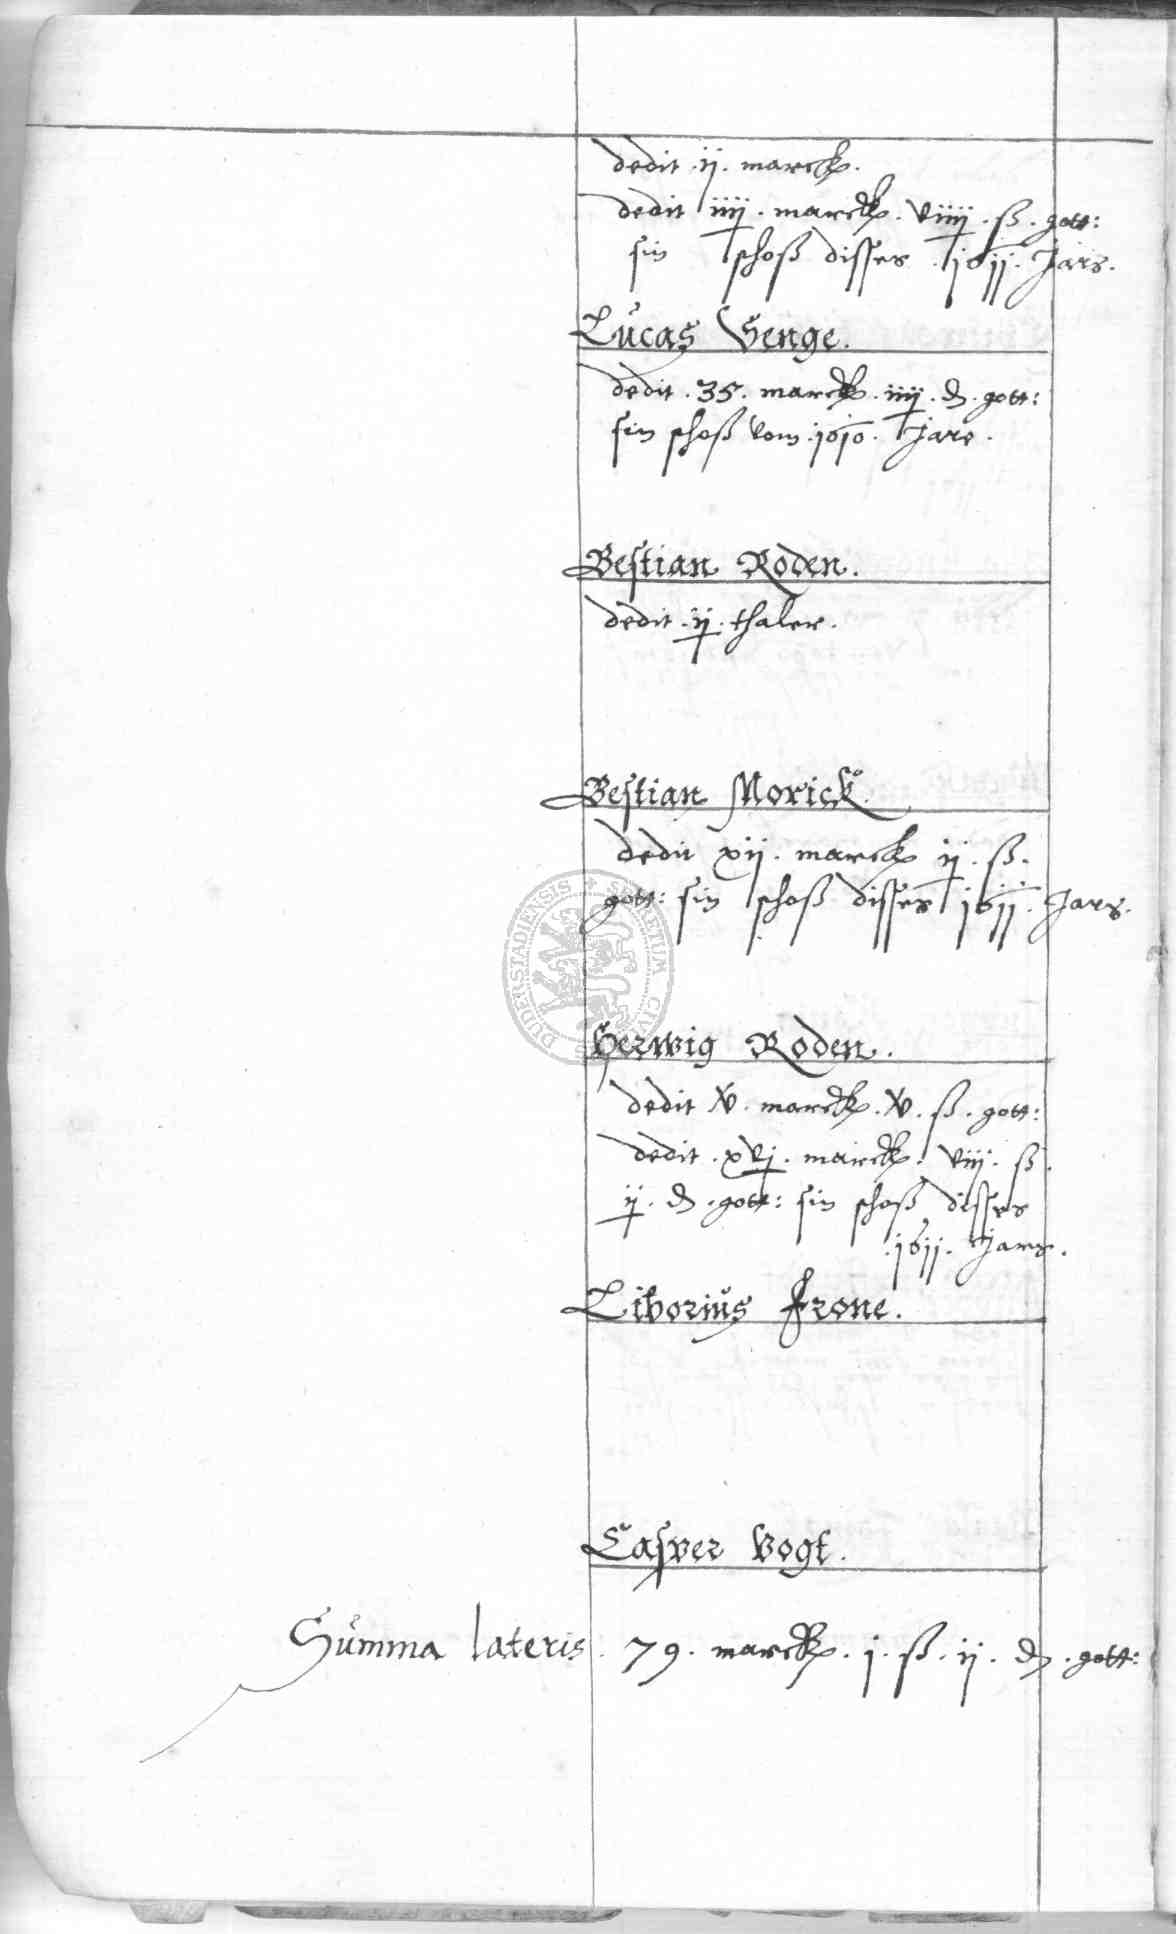 dedit .ij. marck.
dedit iiij. marck. viiij. ß. gott:
sin schoß disses .1611. Jars.
Lucas Senge.
dedit .35. marck. iiij. ₰. gott:
sin schoß vom .1610. Jare.
Bestian Roden.
dedit .ij. thaler.
Bestian Morick.
dedit xij. marck ij. ß.
gott: sin schoß disses 1611. Jars.
SECRETUM CIVI DUDERSTADIENSIS
Herwig Roden.
dedit X. marck. X. ß. gott:
dedit .xvj. marck. viij. ß.
ij. ₰. gott: sin schoß disses
.1611. Jars.
Liborius Frone.
Casper Vogt.
Summa lateris. 79. marck. j. ß. ij. ₰. gott: